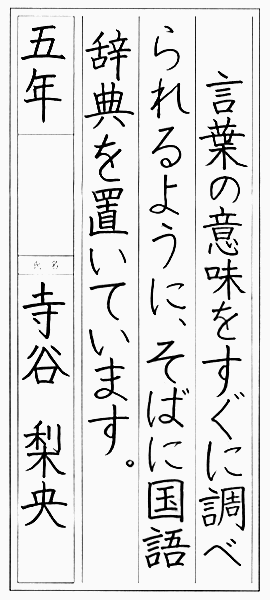 言葉の意味をすぐに調べ
られるように、そばに国語
辞典を置いています。
五年
氏名
寺谷 梨央